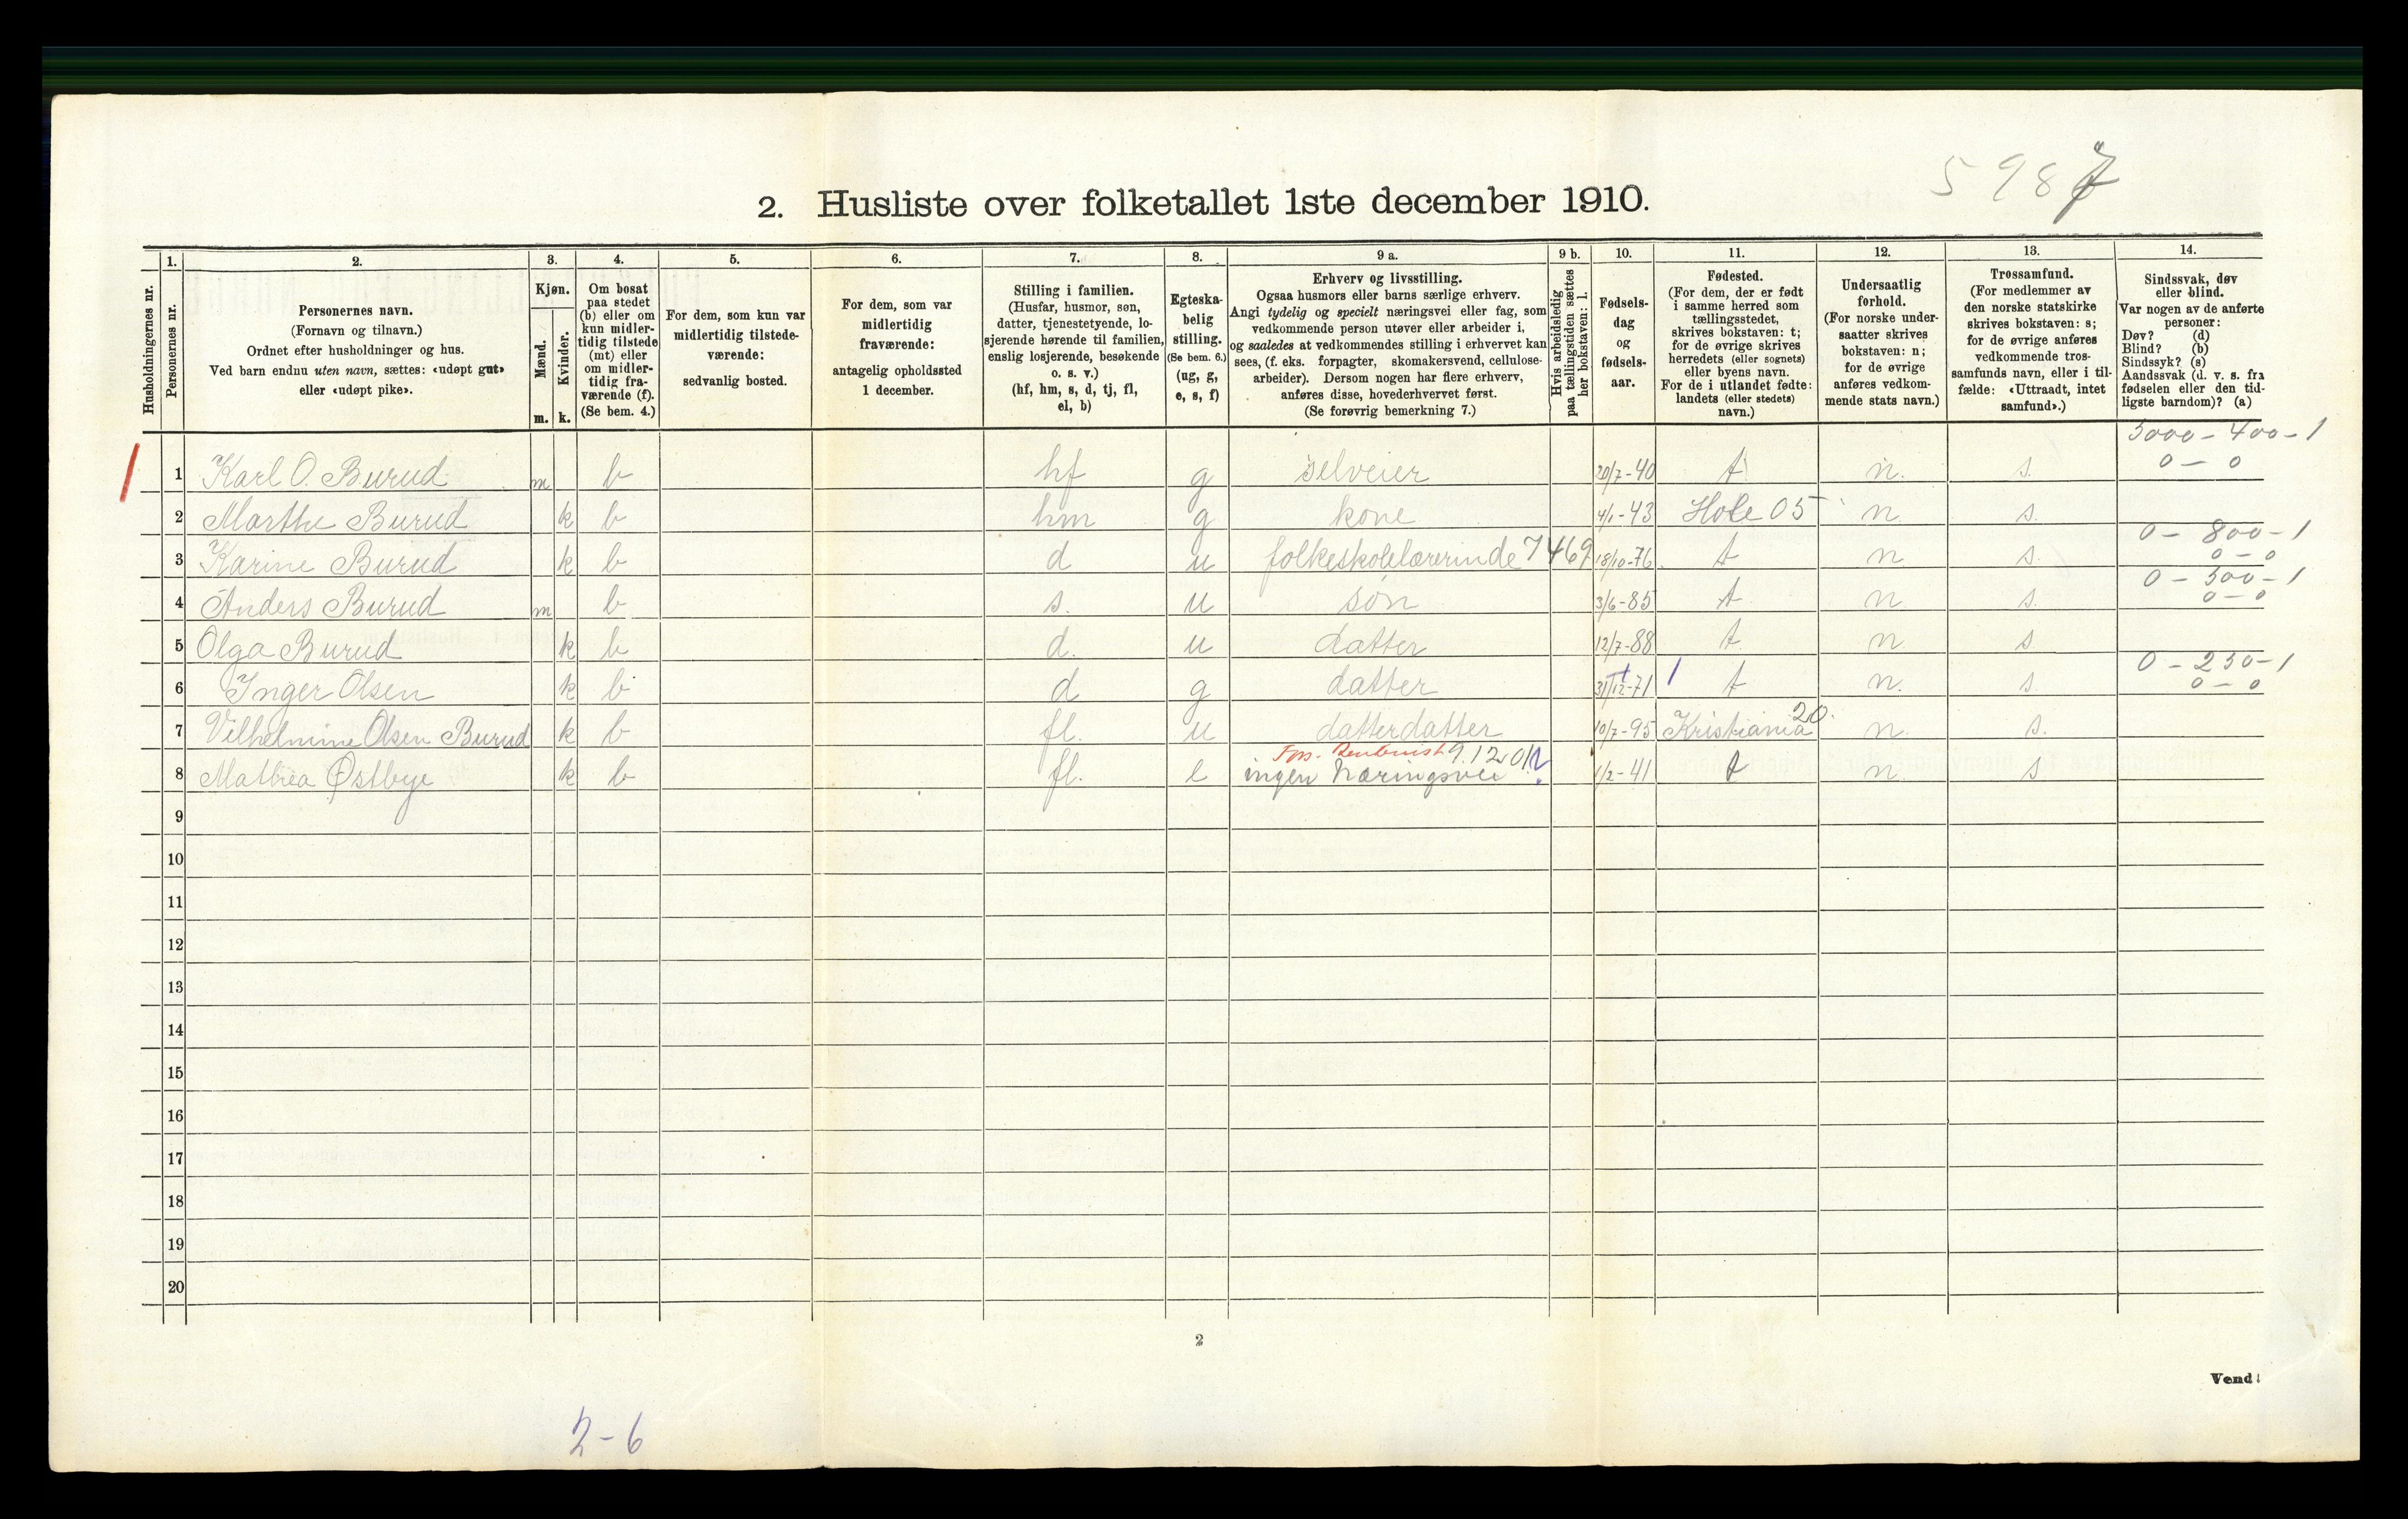 5987
2. Husliste over folketallet 1ste december 1910.
Husholdningernes nr.
1. Personernes nr.
2. Personernes navn.
(Fornavn og tilnavn.)
Ordnet efter husholdninger og hus.
Ved barn endnu uten navn, sættes: «udøpt gut»
eller «udøpt pike».
3. Kjøn.
Mænd. m.
Kvinder. k.
4. Om bosat
paa stedet
(b) eller om
kun midler-
tidig tilstede
(mt) eller
om midler-
tidig fra-
værende (f).
(Se bem. 4.)
5. For dem, som kun var
midlertidig tilstede-
værende:
sedvanlig bosted.
6. For dem, som var
midlertidig
fraværende:
antagelig opholdssted
1 december.
7. Stilling i familien.
(Husfar, husmor, søn,
datter, tjenestetyende, lo-
sjerende hørende til familien,
enslig losjerende, besøkende
o. s. v.)
(hf, hm, s, d, tj, fl,
el, b)
8. Egteska-
belig
stilling.
(Se bem. 6.)
(ug, g,
e, s, f)
9 a. Erhverv og livsstilling.
Ogsaa husmors eller barns særlige erhverv.
Angi tydelig og specielt næringsvei eller fag, som
vedkommende person utøver eller arbeider i,
og saaledes at vedkommendes stilling i erhvervet kan
sees, (f. eks. forpagter, skomakersvend, cellulose-
arbeider). Dersom nogen har flere erhverv,
anføres disse, hovederhvervet først.
(Se forøvrig bemerkning 7.)
9 b. Hvis arbeidsledig
paa tællingstiden sættes
her bokstaven: l.
10. Fødsels-
dag
og
fødsels-
aar.
11. Fødested.
(For dem, der er født
i samme herred som
tællingsstedet,
skrives bokstaven: t;
for de øvrige skrives
herredets (eller sognets)
eller byens navn.
For de i utlandet fødte:
landets (eller stedets)
navn.)
12. Undersaatlig
forhold.
(For norske under-
saatter skrives
bokstaven: n;
for de øvrige
anføres vedkom-
mende stats navn.)
13. Trossamfund.
(For medlemmer av
den norske statskirke
skrives bokstaven: s;
for de øvrige anføres
vedkommende tros-
samfunds navn, eller i til-
fælde: «Uttraadt, intet
samfund».)
14. Sindssvak, døv
eller blind.
Var nogen av de anførte
personer:
Døv? (d)
Blind? (b)
Sindssyk? (s)
Aandssvak (d. v. s. fra
fødselen eller den tid-
ligste barndom)? (a)
3000 - 400 - 1
1 Karl O. Burud m b hf g selveier 20/7-40 t n. s. 0 - 0
2 Marthe Burud k b hm g kone 4/1-43 Hole 05 n. s.
0 - 800 - 1
3 Karine Burud k b d u folkeskolelærerinde 7469 18/10-76 t n s. 0 - 0
0 - 300 - 1
4 Anders Burud m b s. u søn 3/6-85 t n s. 0 - 0
5 Olga Burud k b d. u datter 12/7-88 t n s
0 - 250 - 1
6 Inger Olsen k b d g datter 31/12-71 t n. s. 0 - 0
20.
7 Vilhelmine Olsen Burud k b fl. u datterdatter 10/7-95 Kristiania n. s.
9.12
8 Mathea Østbye k b fl. e ingen Næringsvei 1/2-41 t n. s
9
10
11
12
13
14
15
16
17
18
19
20
2
Vend!
2-6